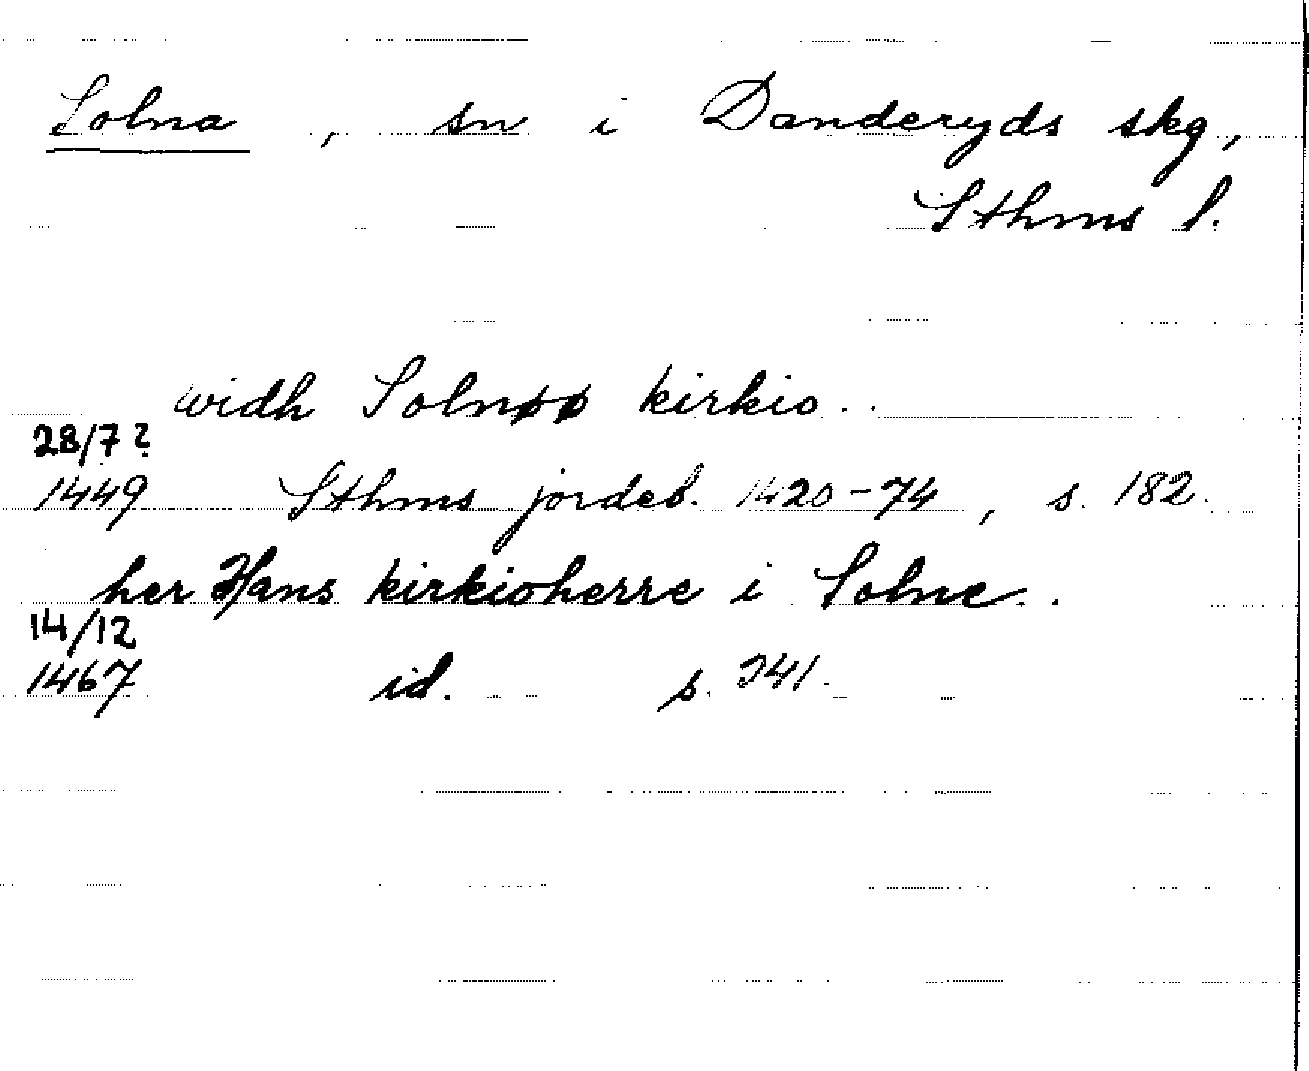 Solna, sn i Danderyds skg,
Sthms l.
widh Solnøø kirkio..
28/7?
1449 Sthms jordeb. 1420-74, s. 182.
her Hans kirkioherre i Solne..
14/12
1467 id. s. 341.